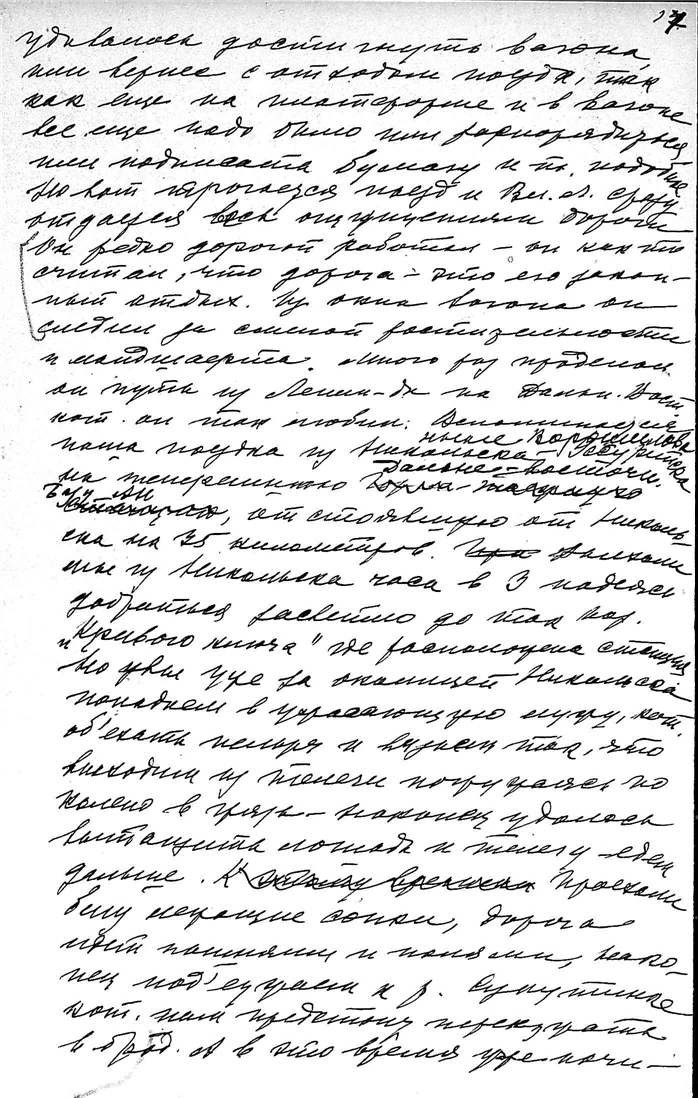 17
удавалось достигнуть вагона,
или вернее с отходом поезда, так
как еще на платформе и в вагоне
все еще надо было или распорядиться
или подписать бумагу и т. подобное
Но вот трогается поезд и Вл. А. сразу
отдается весь ощущениям дороги
Он редко дорогой работал – он как то
считал, что дорога – это его закон-
ный отдых. Из окна вагона он
следил за сменой растительности
и ландшафта. Много раз проделал
он путь из Ленин-да на Дальн. Вост.
кот. он так любил. Вспоминается
ныне Ворошилова
наша поездка из Никольска-Уссурийска
на теперешнюю Дальне-восточн.
Базу АН, отстоявшую от Николь-
ска на 35 километров. Выехали
мы из Никольска часа в 3 надеясь
добраться засветло до так наз.
"Кривого ключа" где расположена станция
Но увы уже за околицей Никольска
попадаем в ужасающую лужу, кот.
об'ехать нельзя и вязнем так, что
выходим из телеги погружаясь по
колено в грязь – наконец удалось
вытащить лошадь и телегу едем
дальше. К времени Проехали
дорога
идет пашнями и полями, нако-
нец под'езжаем к р. Супутинке
кот. нам предстоит переезжать
в брод. А в это время уже начи–